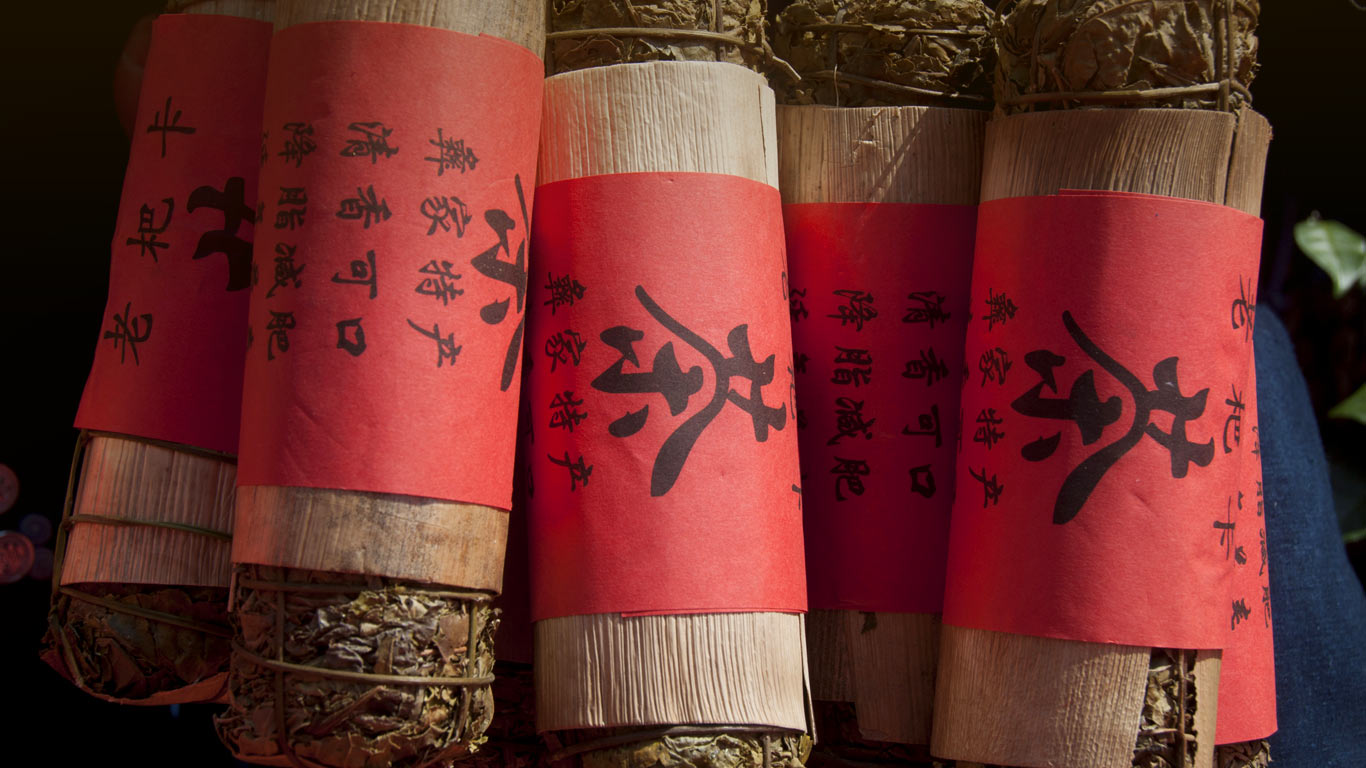 老粑卡
茶
彝家特产
清香可口
降脂减肥
茶
彝家特产
清香可口
降脂减肥
老粑卡
茶
彝家特产